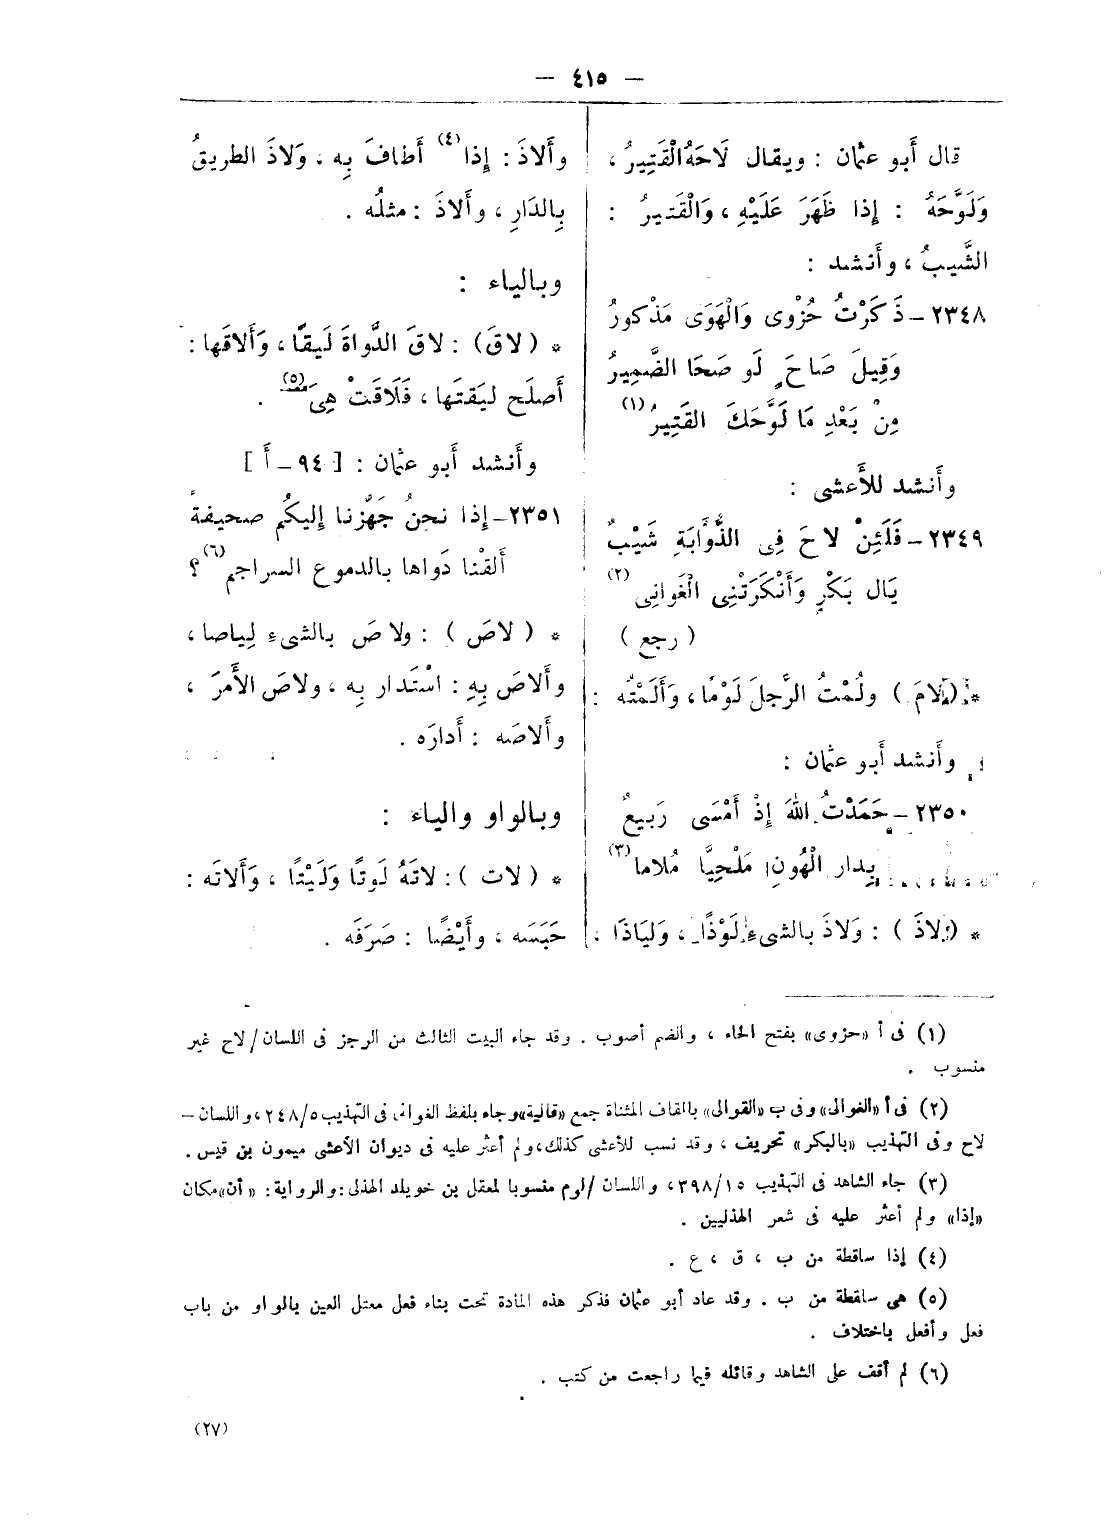 — ٤١٥ —
قال أبو عثمان : ويقال لَاحَهُ الْقَتِيرُ ،
وَلَوَّحَهُ : إذا ظَهَرَ عَلَيْهِ ، وَالْقَتيرُ :
الشَّيبُ ، وأَنشد :
٢٣٤٨ – ذَكَرْتُ حُزْوى وَالْهَوَى مَذْكورُ
وَقِيلَ صَاحَ لَو صَحَا الضَّميرُ
مِنْ بَعْدِ مَا لَوَّحَكَ القَتِيرُ (١)
وأَنشد للأَعشى :
٢٣٤٩ – فَلَئِنْ لاحَ فِى الذُّوَابَةِ شَيْبٌ
يَال بَكْرٍ وَأَنْكَرَتْنِى الْغَوانِى (٢)
( رجع )
* ( لامَ ) ولُمْتُ الرَّجلَ لَوْمًا ، وَأَلَمْتُه :
وأَنشد أَبو عثمان :
٢٣٥٠ – حَمَدْتُ اللهَ إِذْ أَمْسَى رَبِيعٌ
بِدار الْهُونِ مَلْحِيًّا مُلاما (٣)
* ( لاذَ ) : وَلاذَ بالشىءِ لَوْذًا ، وَليَاذًا ،
وأَلاذَ : إِذا (٤) أَطافَ بِه ، وَلاذَ الطريقُ
بِالدَارِ ، وأَلاذَ : مثلُه .
وبالياء :
* ( لاقَ ) : لاقَ الدَّواةَ لَيقًا ، وَأَلاقَها :
أَصلَح ليَقتَها ، فَلَاقَتْ هِىَ (٥) .
وأَنشد أَبو عثمان : [ ٩٤ – أَ ]
٢٣٥١ – إِذا نحنُ جَهَّزنا إِليكُم صحيفةً
أَلقْنا دَواها بالدموع السراجم (٦) ؟
* ( لاصَ ) : ولاصَ بالشىءِ لِياصا ،
وأَلاصَ بِهِ : اسْتَدار بِه ، ولاصَ الأَمرَ ،
وأَلاصَه : أَدارَه .
وبالواو والياء :
* ( لات ) : لاتَهُ لَوتًا وَلَيْتًا ، وَأَلاتَه :
حَبَسَه ، وأَيْضًا : صَرَفَه .
(١) فى أ «حزوى» بفتح الحاء ، والضم أصوب . وقد جاء البيت الثالث من الرجز فى اللسان/لاح غير
منسوب .
(٢) فى أ «الغوالى» وفى ب «القوالى» بالقاف المثناة جمع «قالية» وجاء بلفظ الغوانى فى التهذيب ٢٤٨/٥ ، واللسان –
لاح وفى التهذيب «بالبكر» تحريف ، وقد نسب للأعشى كذلك ، ولم أعثر عليه فى ديوان الأعشى ميمون بن قيس .
(٣) جاء الشاهد فى التهذيب ٣٩٨/١٥ ، واللسان /لوم منسوبا لمعقل بن خويلد الهذلى : والرواية : «أن» مكان
«إذا» ولم أعثر عليه فى شعر الهذليين .
(٤) إذا ساقطة من ب ، ق ، ع .
(٥) هى ساقطة من ب . وقد عاد أبو عثمان فذكر هذه المادة تحت بناء فعل معتل العين بالواو من باب
فعل وأفعل باختلاف .
(٦) لم أقف على الشاهد وقائله فيما راجعت من كتب .
(٢٧)